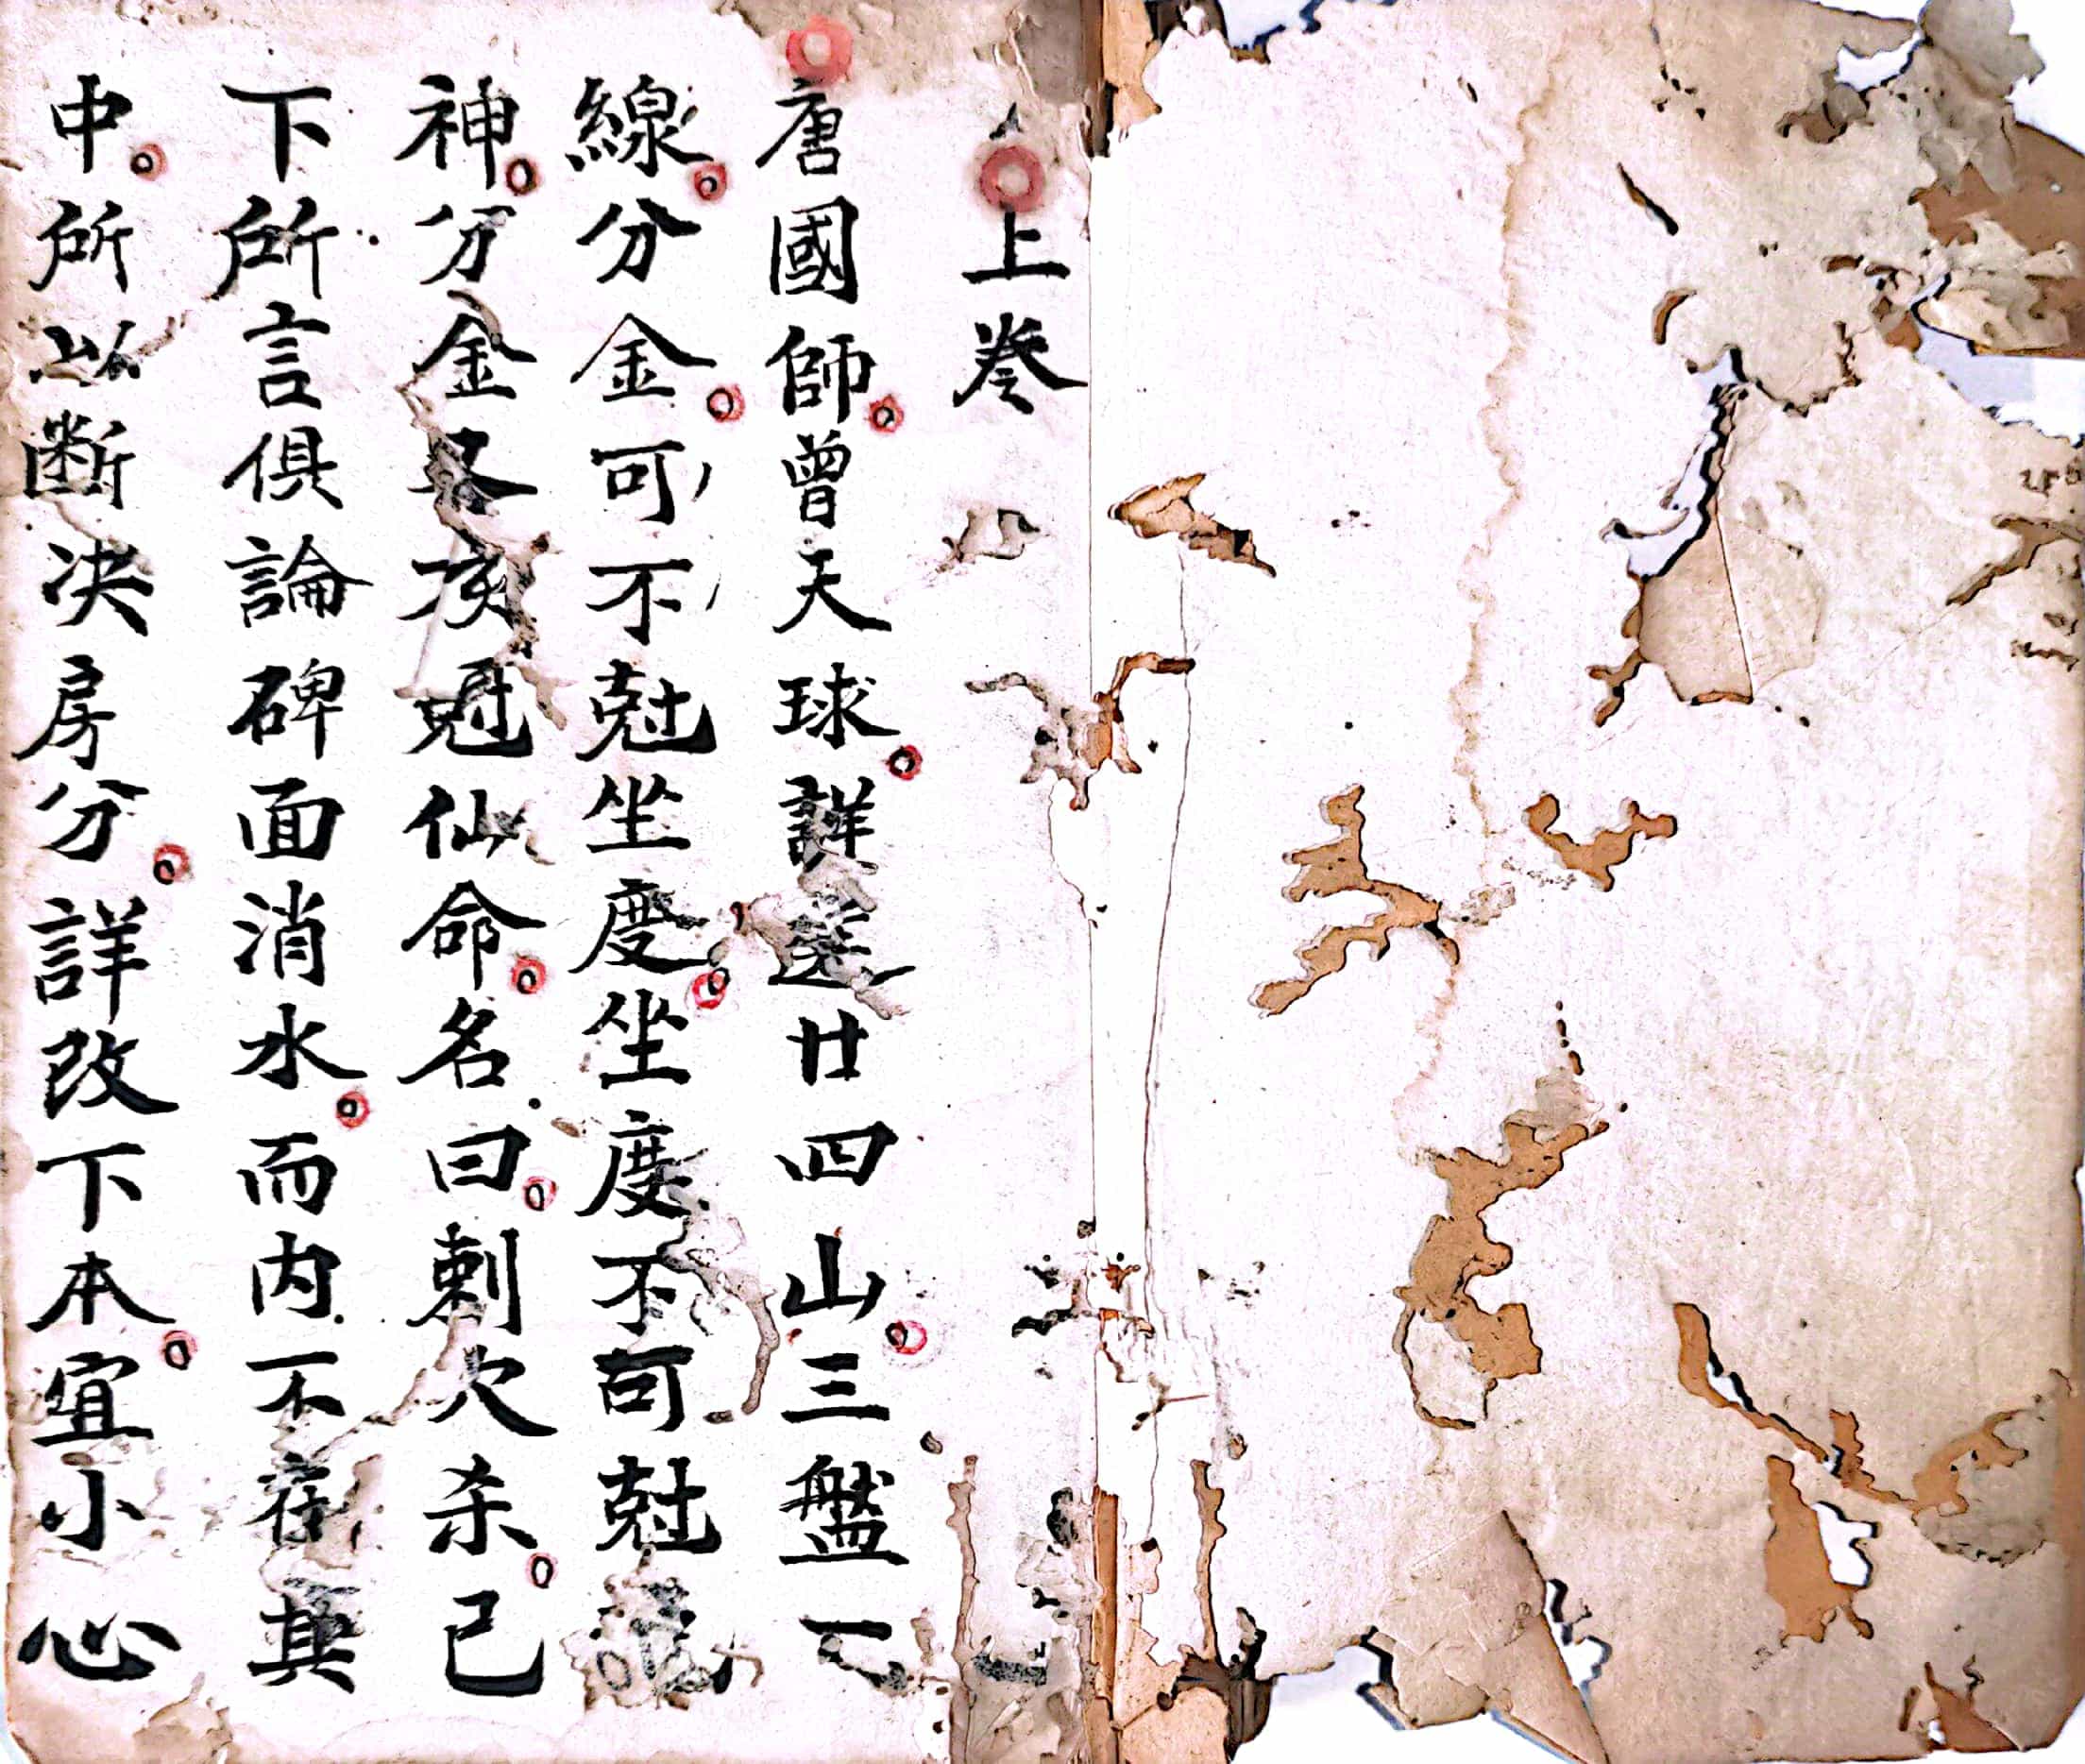 上卷
唐國師曾天球詳選廿四山三盤
線分金可不尅坐度坐度不可尅龍
神分金又亥尅仙命名曰刺穴杀已
下所言俱論碑面消水而内不在其
中所以断决房分詳改下本宜小心